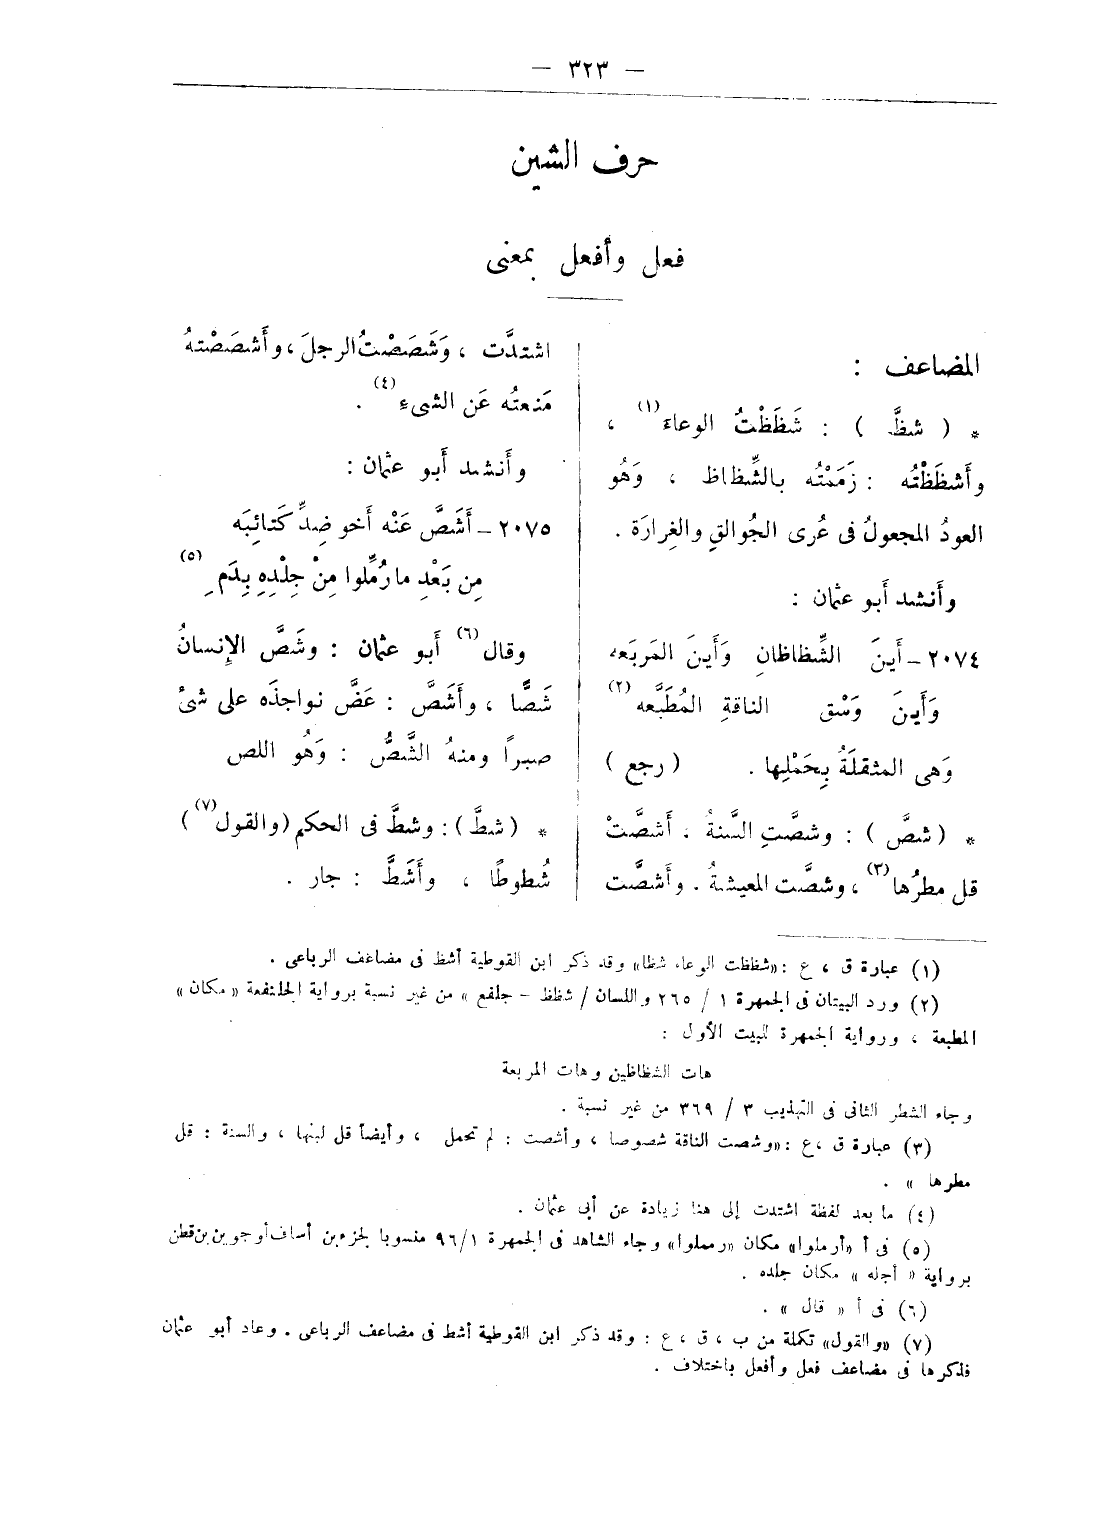 — ٣٢٣ —
حرف الشين
فعل وأفعل بمعنى
المضاعف :
* ( شظَّ ) : شَظَظْتُ الوعاءَ (١) ،
وأَشظَظْتُه : زَمَمْتُه بالشِّظاظ ، وَهُو
العودُ المجعولُ فى عُرى الجُوالقِ والغِرارَة .
وأَنشد أَبو عثمان :
٢٠٧٤ ـ أَينَ الشِّظاظانِ وَأَينَ المَربَعه
وَأَينَ وَسْق الناقةِ المُطَبَّعه (٢)
وَهى المثقلَةُ بِحَمْلِها . ( رجع )
* ( شصَّ ) : وشصَّتِ السَّنةُ ، أَشصَّتْ
قل مطرُها (٣) ، وشصَّت المعيشةُ . وأَشصَّت
اشتدَّت ، وَشَصَصْتُ الرجلَ ، وأَشصَصْتهُ
مَنعتُه عَن الشىءِ (٤) .
وأَنشد أَبو عثمان :
٢٠٧٥ ـ أَشَصَّ عَنْه أَخو ضِدٍّ كَتائِبَه
مِن بَعْدِ ما رُمِّلوا مِنْ جِلْدِهِ بِدَمِ (٥)
وقال (٦) أَبو عثمان : وشَصَّ الإِنسانُ
شَصًّا ، وأَشَصَّ : عَضَّ نواجذَه على شئْ
صبراً ومنهُ الشَّصُّ : وَهُو اللص
* ( شطَّ ) : وشطَّ فى الحكم (والقول (٧) )
شُطوطًا ، وأَشَطَّ : جار .
(١) عبارة ق ، ع : «شظظت الوعاء شظا» وقد ذكر ابن القوطية أشظ فى مضاعف الرباعى .
(٢) ورد البيتان فى الجمهرة ١ / ٢٦٥ واللسان / شظظ – جلفع » من غير نسبة برواية الجلنفعة «مكان»
المطبعة ، ورواية الجمهرة للبيت الأول :
هات الشظاظين وهات المربعة
وجاء الشطر الثانى فى التهذيب ٣ / ٣٦٩ من غير نسبة .
(٣) عبارة ق ،ع : «وشصت الناقة شصوصا ، وأشصت : لم تحمل ، وأيضاً قل لبنها ، والسنة : قل
مطرها » .
(٤) ما بعد لفظة اشتدت إلى هنا زيادة عن أبى عثمان .
(٥) فى أ «أرملوا» مكان «رمملوا» وجاء الشاهد فى الجمهرة ٩٦/١ منسوبا لجزء بن أساف أو جوين بن قطن
برواية « أجله » مكان جلده .
(٦) فى أ « قال » .
(٧) «والقول» تكملة من ب ، ق ، ع : وقد ذكر ابن القوطية أشط فى مضاعف الرباعى . وعاد أبو عثمان
فذكرها فى مضاعف فعل وأفعل باختلاف .